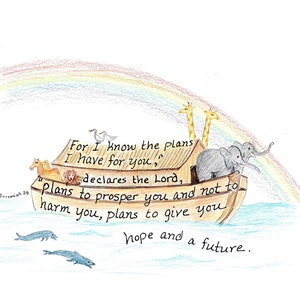 For I know the plans
I have for you,"
declares the Lord,
"plans to prosper you and not to
harm you, plans to give you
hope and a future.